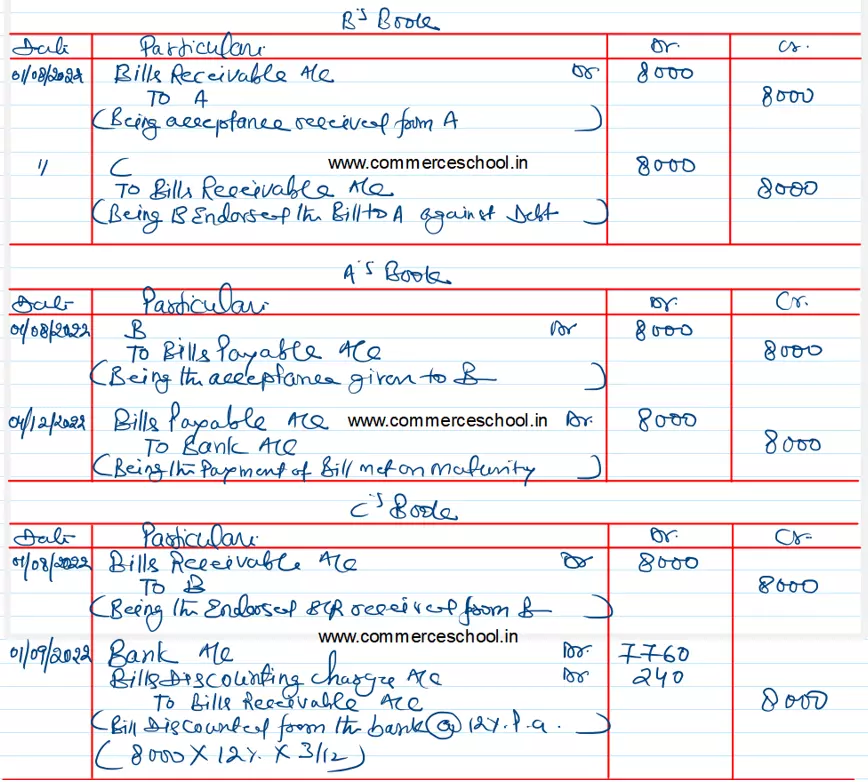 B's Book
Date Particulars Dr. Cr.
01/08/2022 Bills Receivable A/c Dr 8000
To A 8000
(Being acceptance received from A)
" C www.commerceschool.in 8000
To Bills Receivable A/c 8000
(Being B Endorsed the Bill to A against Debt)
A's Book
Date Particulars Dr. Cr.
01/08/2022 B Dr 8000
To Bills Payable A/c 8000
(Being the acceptance given to B)
04/12/2022 Bills Payable A/c www.commerceschool.in Dr. 8000
To Bank A/c 8000
(Being the Payment of Bill met on maturity)
C's Book
Date Particulars Dr. Cr-
01/08/2022 Bills Receivable A/c Dr 8000
To B 8000
(Being the Endorsed B/R received from B)
www.commerceschool.in
01/09/2022 Bank A/c Dr. 7760
Bills Discounting charges A/c Dr 240
To Bills Receivable A/c 8000
(Bill Discounted from the bank @ 12%. P.a.)
(8000 X 12% X 3/12)